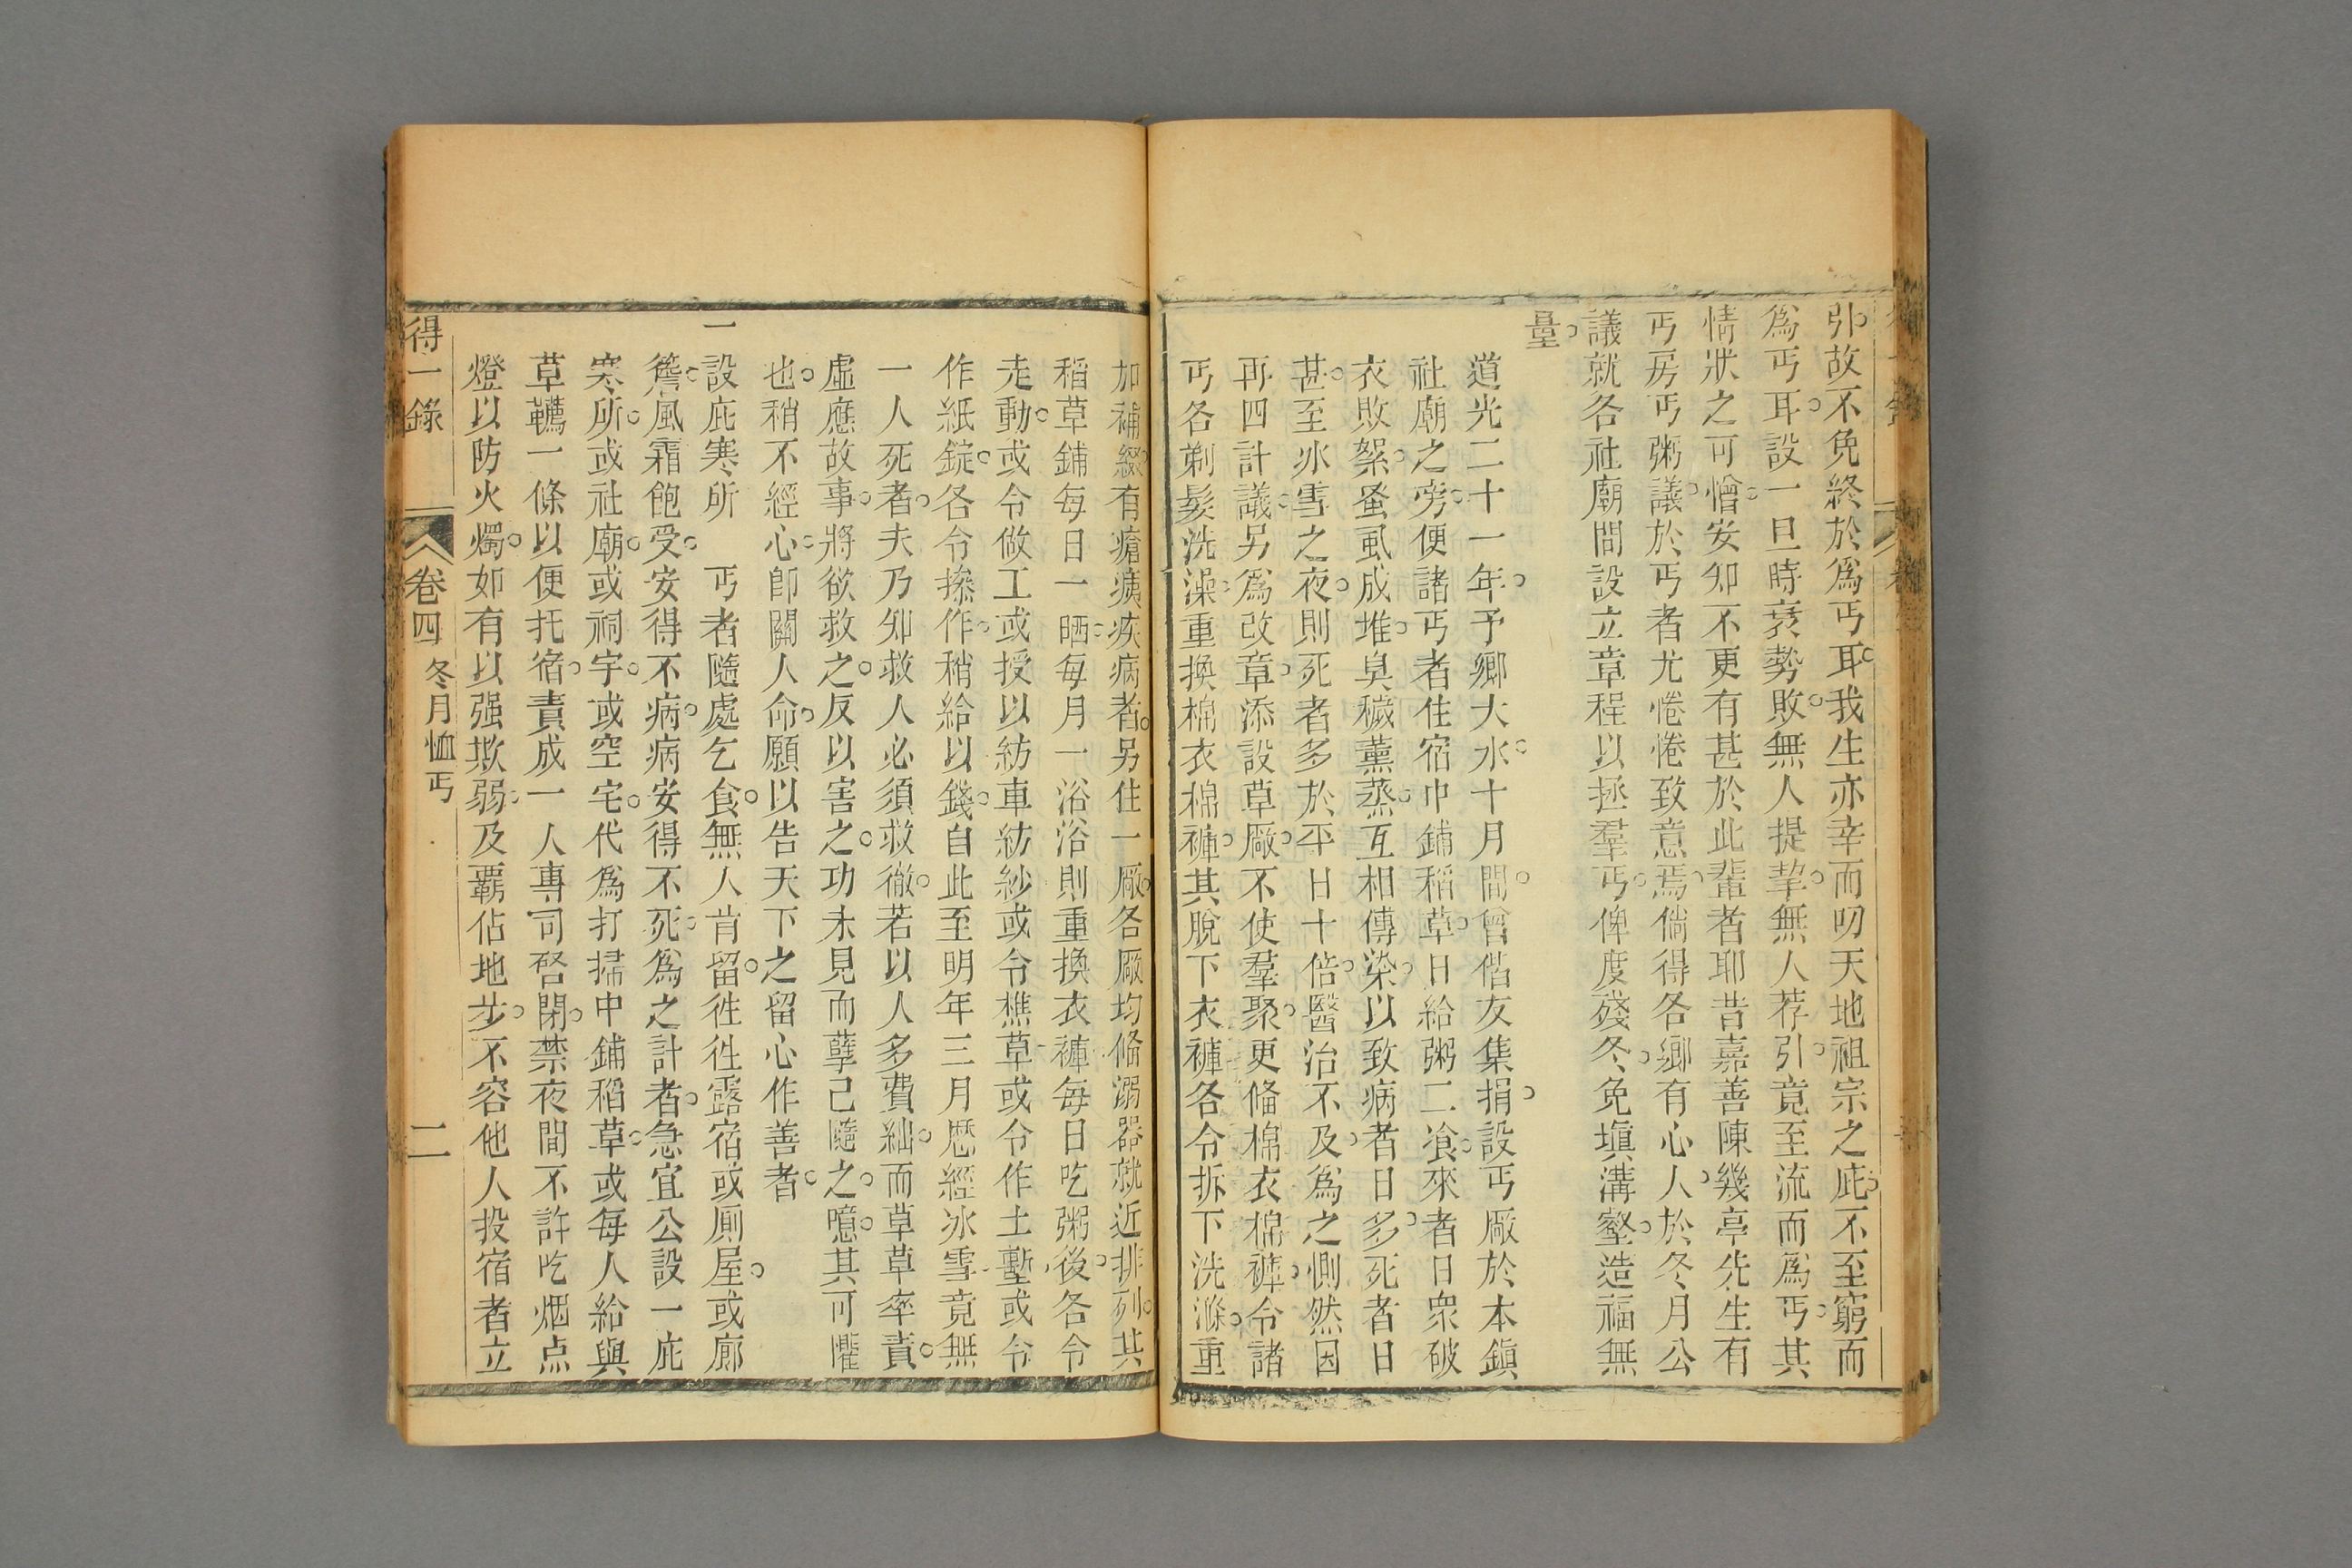 引故不免終於爲丐耳我生亦幸而叨天地祖宗之庇不至窮而
爲丐耳設一旦時衰勢敗無人提挈無人荐引竟至流而爲丐其
情狀之可憎安知不更有甚於此輩者耶昔嘉善陳幾亭先生有
丐房丐粥議於丐者尤惓惓致意焉倘得各鄉有心人於冬月公
議就各社廟間設立章程以拯羣丐俾度殘冬免塡溝壑造福無
量
道光二十一年予鄉大水十月間曾偕友集捐設丐厰於本鎭
社廟之旁便諸丐者住宿中鋪稻草日給粥二飡來者日衆破
衣敗絮蚤虱成堆臭穢薰蒸互相傳染以致病者日多死者日
甚至冰雪之夜則死者多於平日十倍醫治不及爲之惻然因
再四計議另爲改章添設草厰不使羣聚更偹棉衣棉褲令諸
丐各剃髮洗澡重換棉衣棉褲其脫下衣褲各令拆下洗滌重
加補綴有瘡痍疾病者另住一厰各厰均偹溺器就近排列其
稻草鋪每日一晒每月一浴浴則重換衣褲每日吃粥後各令
走動或令做工或授以紡車紡紗或令樵草或令作土墼或令
作紙錠各令操作稍給以錢自此至明年三月歷經冰雪竟無
一人死者夫乃知救人必須救徹若以人多費絀而草草率責
虛應故事將欲救之反以害之功未見而孽己隨之噫其可懼
也稍不經心卽關人命願以告天下之留心作善者
一設庇寒所　丐者隨處乞食無人肯留徃徃露宿或廁屋或廊
簷風霜飽受安得不病病安得不死爲之計者急宜公設一庇
寒所或社廟或祠宇或空宅代爲打掃中鋪稻草或每人給與
草韉一條以便托宿責成一人專司啓閉禁夜間不許吃烟点
燈以防火燭如有以强欺弱及覇佔地步不容他人投宿者立
得一錄　卷四　冬月恤丐　二